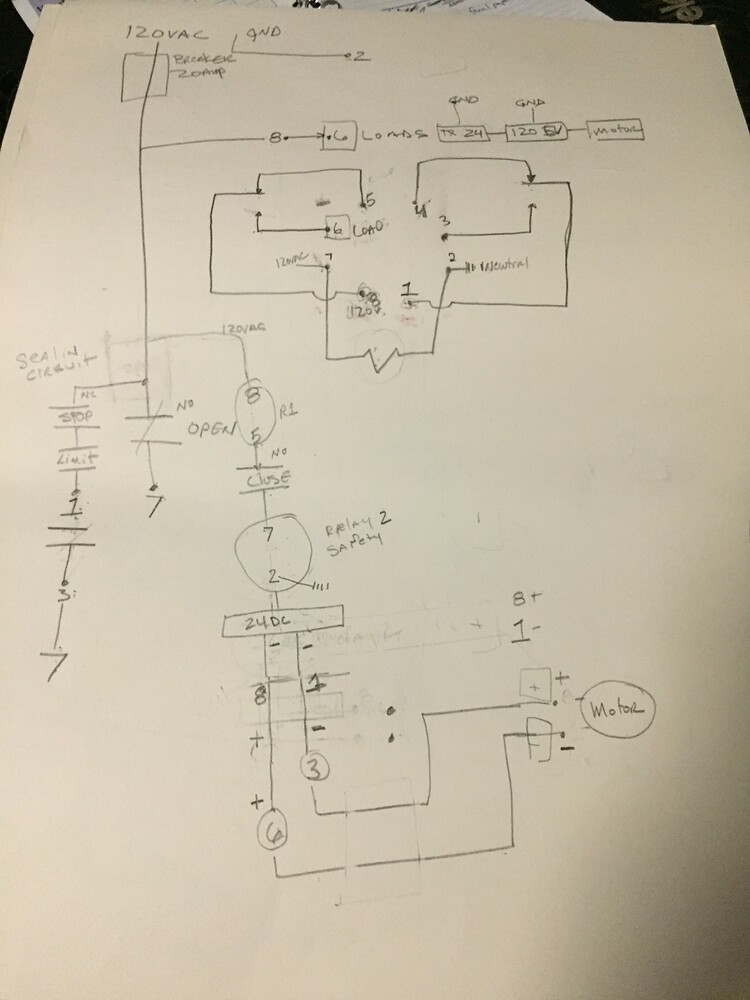 120VAC
GND
BREAKER
20AMP
2
GND
GND
8
6
LOADS
TX 24
120 5V
Motor
5
4
6
LOAD
3
120VAC
7
2
Neutral
8
120V
1
120VAC
SEALIN
CIRCUIT
NC
STOP
NO
OPEN
8
R1
5
NO
CLOSE
Limit
1
7
7
Relay 2
SAFETY
2
3
7
24DC
8+
1-
-
-
8
1
+
-
+
+
Motor
-
3
+
6